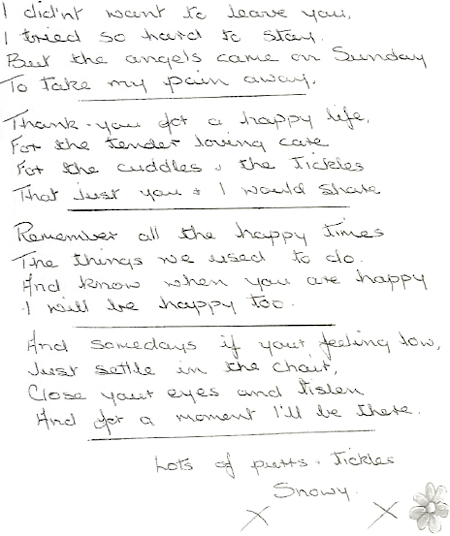 I did'nt want to leave you,
I tried so hard to stay.
But the angels came on Sunday
To take my pain away.
Thank-you for a happy life,
For the tender loving care
For the cuddles & the Tickles
That just you & I would share
Remember all the happy times
The things we used to do.
And know when you are happy
I will be happy too.
And somedays if your feeling low,
Just settle in the chair,
Close your eyes and listen
And for a moment I'll be there.
Lots of purrs & Tickles
Snowy.
X X